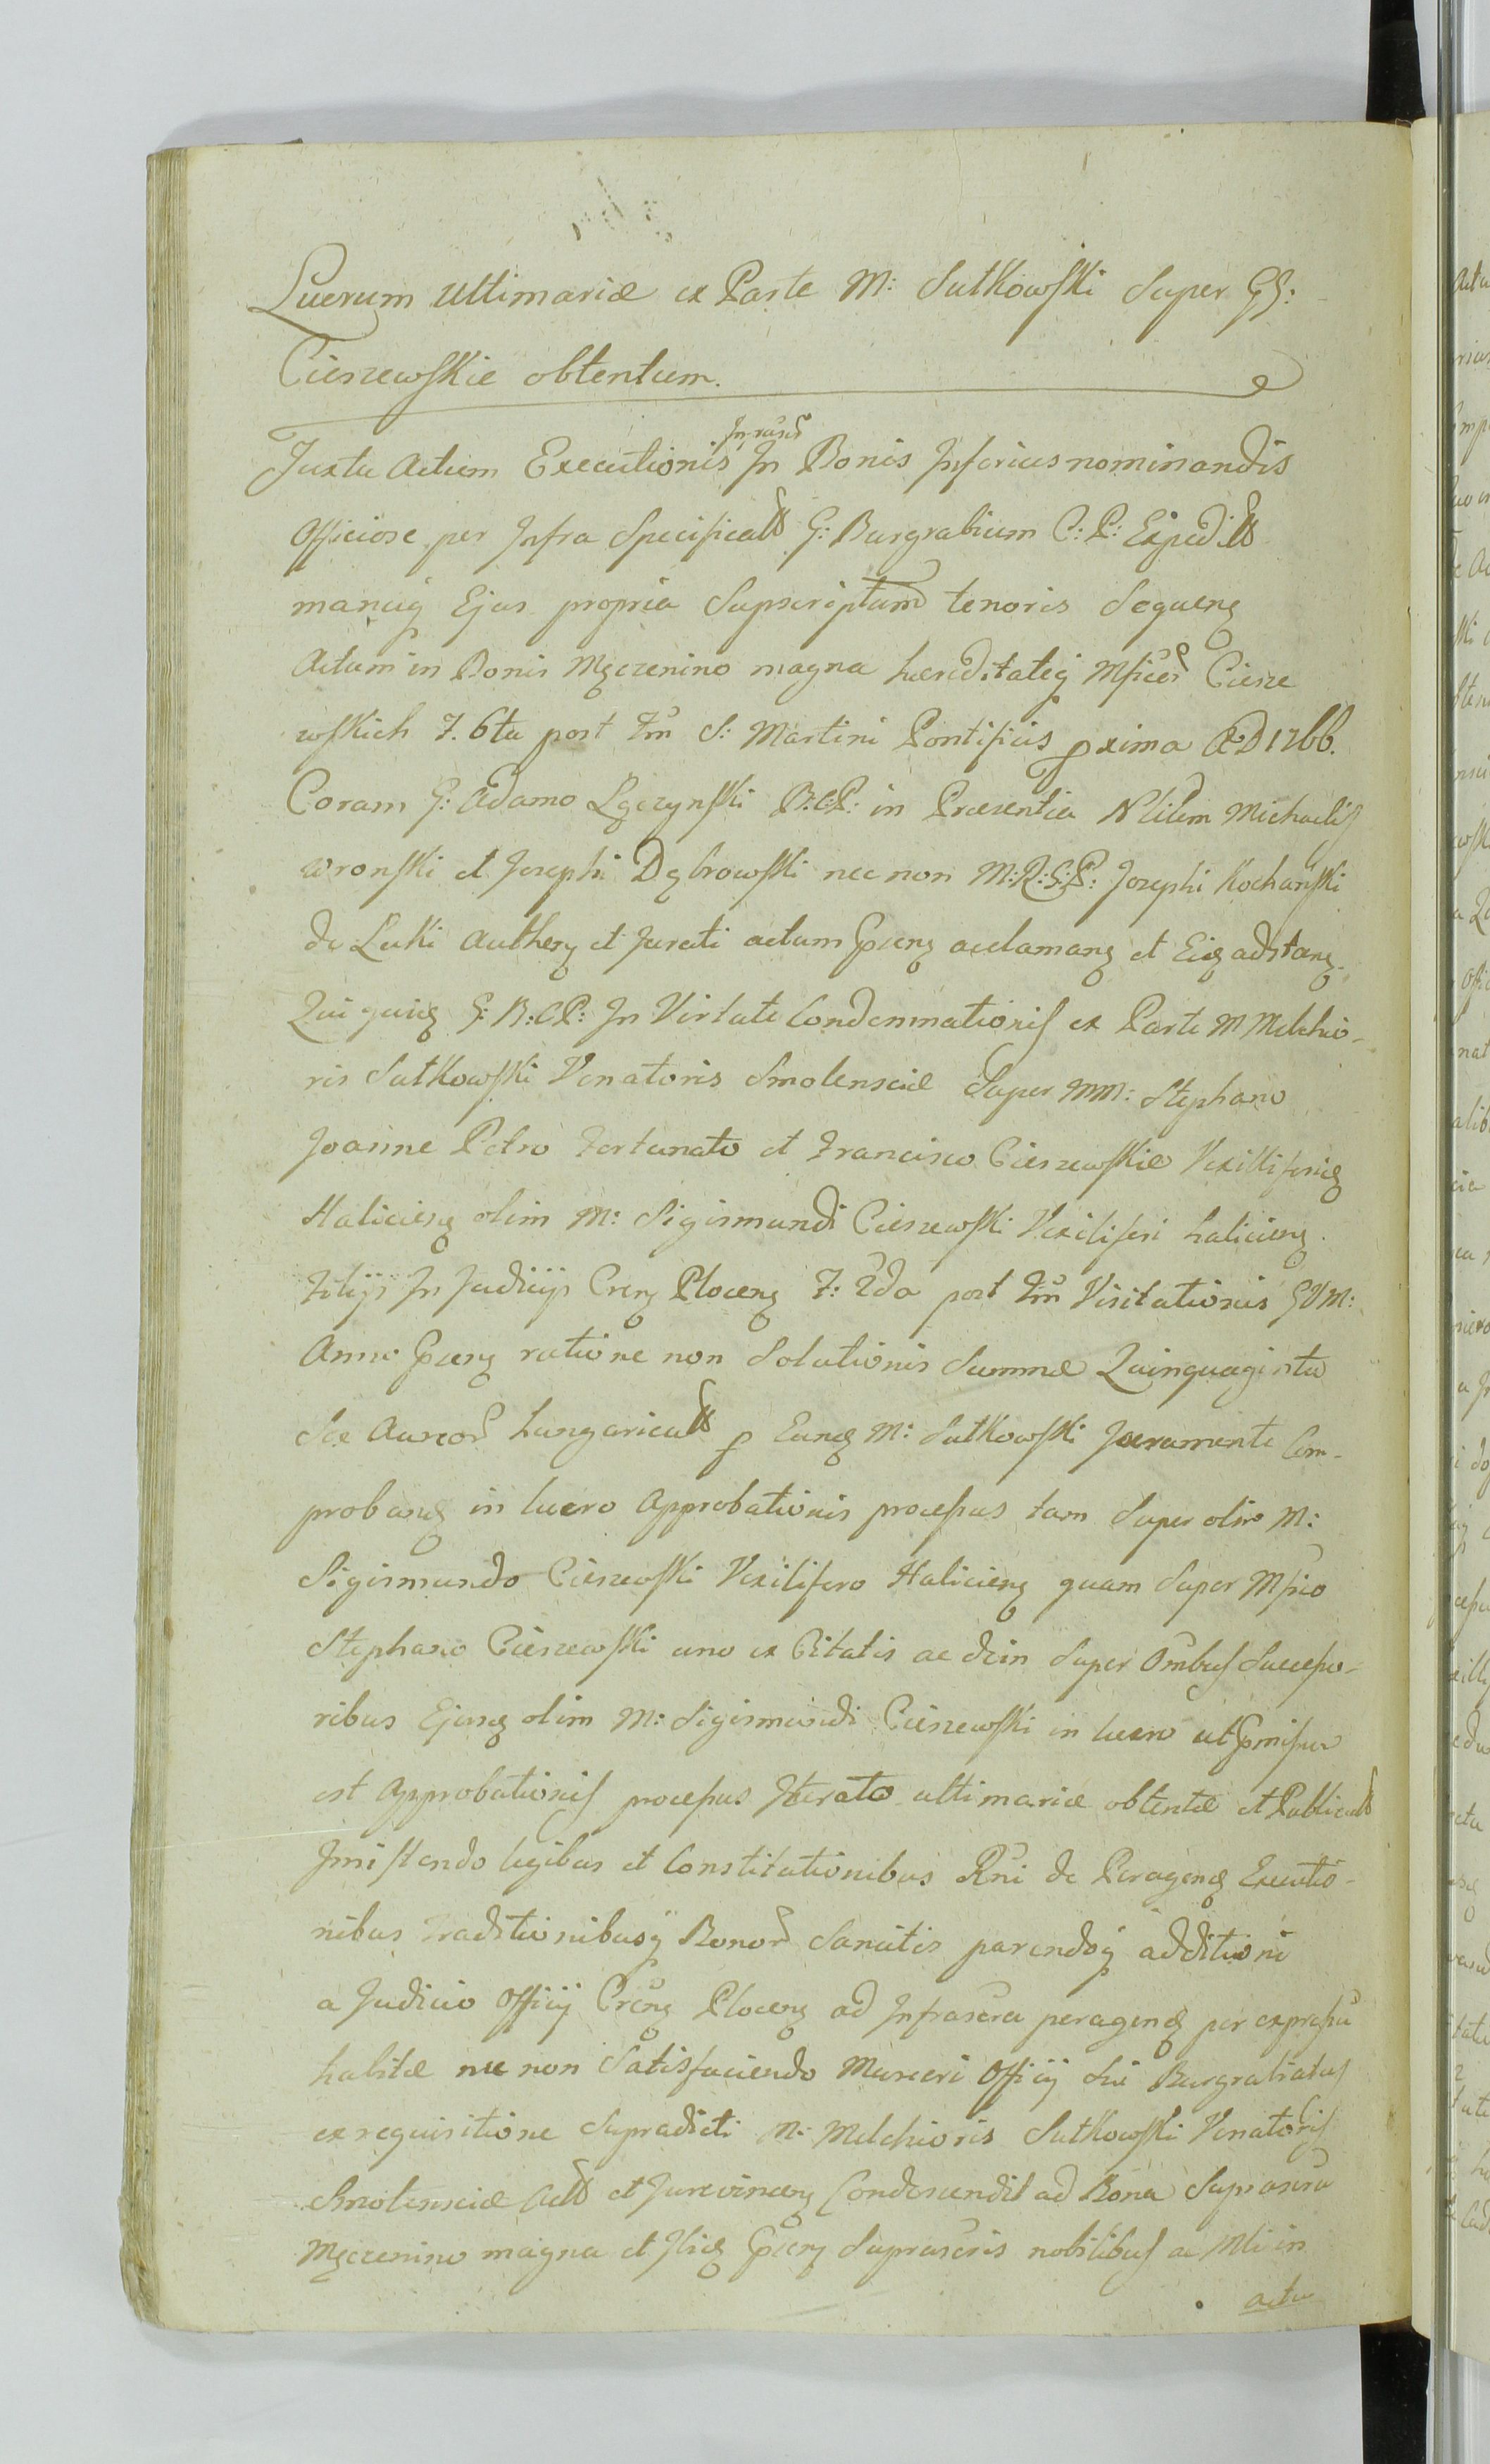 Lucrum Ultimariæ ex Parte M: Sutkowski Super GG:
Cieszewskie obtentum.
Infrascr
Juxta Actum Executionis In Bonis Inferius nominandis
Officiose per Infra Specificatt G: Burgrabium C: P: Expeditt
manuq Ejus propria Supscriptum tenoris Sequeng
Actum in Bonis Męczenino magna hæreditateq Mficor Ciesze
wskich F. 6ta post Fm S: Martini Pontificis pxima AD 1766.
Coram G: Adamo Łączynski B:C:P: in Præsentia Nlium Michaelis
Wronski et Josephi Dąbrowski nec non M:R:G:P: Josephi Kochański
de Luki Autheng et Jurati actum Pnceng acclamang et Eidg adstang.
Qui quidg G: B:CP: In Virtute Condemnationis ex Parte M Melchio-
ris Sutkowski Venatoris Smolensciæ Super MM: Stephano
Joanne Petro Fortunato et Francisco Cieszewskie Vexilliferidg
Halicieng olim M: Sigismundi Cieszewski Vexiliferi halicieng.
Filijs In Judicijs Creng Ploceng F: 2da post Fm Visitationis GVM:
Anno Pneng ratione non Solutionis Summæ Quinquaginta
Sex Aureor hungaricatt p Eundg M: Sutkowski Juramente Com-
probandg in lucro Approbationis processus tam Super olim M:
Sigismundo Cieszewski Vexilifero Halicieng quam Super Mfico
Stephano Cieszewski uno ex Citatis ac dein Super Ombus Successo-
ribus Ejusdg olim M: Sigismundi Cieszewski in lucro ut Pmissu
est Approbationis processus Iterato ultimariæ obtentæ et Publicatt
Innistendo legibus et Constitutionibus Rni de Peragendg Executio-
nibus Traditionibusq Bonor Sancitis parendoq additioni
a Judicio Officij Creng Ploceng ad Infrascra peragendg per expressu
habitæ nec non Satisfaciendo Muneri Officij Sui Burgrabiatus
ex requisitione Supradicti M: Melchioris Sutkowski Venatoris
Smolensciæ Actt et Jurevinceng Condescendit ad Bona Suprascra
Męczenino magna et Ibidg Pneng Suprascris nobilibus ac Mli in
actu